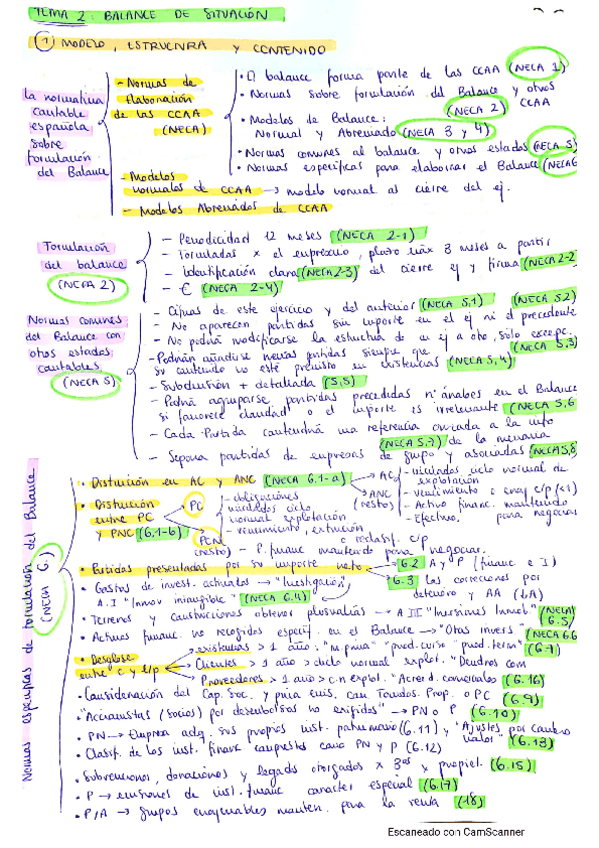 TEMA 2: BALANCE DE SITUACIÓN
1 MODELO, ESTRUCTURA Y CONTENIDO
La normativa contable española sobre formulación del Balance
- Normas de Elaboración de las CCAA (NECA)
• El balance forma parte de las CCAA (NECA 1)
• Normas sobre formulación del Balance y otros CCAA (NECA 2)
• Modelos de Balance:
Normal y Abreviado (NECA 3 y 4)
• Normas comunes al balance y otros estados (NECA 5)
• Normas específicas para elaborar el Balance (NECA 6
- Modelos normales de CCAA → modelo normal al cierre del ej.
- Modelos Abreviados de CCAA
Formulación del balance (NECA 2)
- Periodicidad 12 meses (NECA 2-1)
- Formuladas x el empresario, plazo máx 3 meses a partir del cierre ej y firma (NECA 2-2
- Identificación clara (NECA 2-3)
- € (NECA 2-4)
Normas comunes del Balance con otros estados contables (NECA 5)
- Cifras de este ejercicio y del anterior (NECA 5,1)
- No aparecen partidas sin importe en el ej ni el precedente (NECA 5,2)
- No podrá modificarse la estructura de un ej a otro, solo excepc. 5,3)
- Podrán añadirse nuevas partidas siempre que su contenido no esté previsto en existencias (NECA 5,4)
- Subdivisión + detallada (5,5)
- Podrá agruparse partidas precedidas nº árabes en el Balance si favorece claridad o el importe es irrelevante (NECA 5,6
- Cada Partida contendrá una referencia cruzada a la info de la memoria (NECA 5,7)
- Separa partidas de empresas de grupo y asociadas (NECA 5,8)
Normas específicas de formulación del Balance (NECA 6)
• Distinción en AC y ANC (NECA 6.1-a)
AC - vinculados ciclo normal de explotación
- vencimiento o enaj c/p (<1)
- Activo financ. mantenido para negociar
- Efectivo,
ANC (resto)
• Distinción entre PC y PNC (6.1-b)
PC - obligaciones vinculadas ciclo normal explotación
- vencimiento, extinción o reclasif. c/p
- P. financ mantenido para negociar.
PCN (resto)
• Partidas presentadas por su importe neto
6.2 A y P (financ e I)
6.3 las correcciones por deterioro y AA (bA)
• Gastos de invest. activados → "Investigación,
A.I "Inmov intangible" (NECA 6.4)
• Terrenos y construcciones obtener plusvalías → A III "Inversiones Inmob" (NECA 6.5)
• Activos financ. no recogidos específ. en el Balance → "Otras invers" (NECA 6.6
• Desglose entre c y l/p
existencias > 1 año: "m prima" "prod. curso" "prod. term" (6.7)
Clientes > 1 año > ciclo normal explot. "Deudores com
Proveedores > 1 año > c.n explot. "Acreed. comerciales (6.16)
• Consideración del Cap. Soc. y prima emis. con Fondos. Prop. o PC (6.9)
• "Accionistas (socios) por desembolsos no exigidos" → PN o P (6.10)
• PN → Empresa adq. sus propios inst. patrimonio (6.11) y "Ajustes por cambio valor" (6.13)
• Clasif. de los inst. financ compuestos como PN y P (6.12)
• Subvenciones, donaciones y legados otorgados x 3os x propiet. (6.15)
• P → emisiones de inst. financ caracter especial (6.17)
• P/A → grupos enajenables manten. para la venta (18)
Escaneado con CamScanner